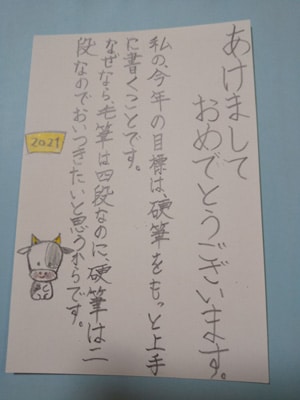 あけまして
おめでとうございます。
私の、今年の目標は、硬筆をもっと上手
に書くことです。
なぜなら、毛筆は四段なのに、硬筆は二
段なのでおいつきたいと思うからです。
2021